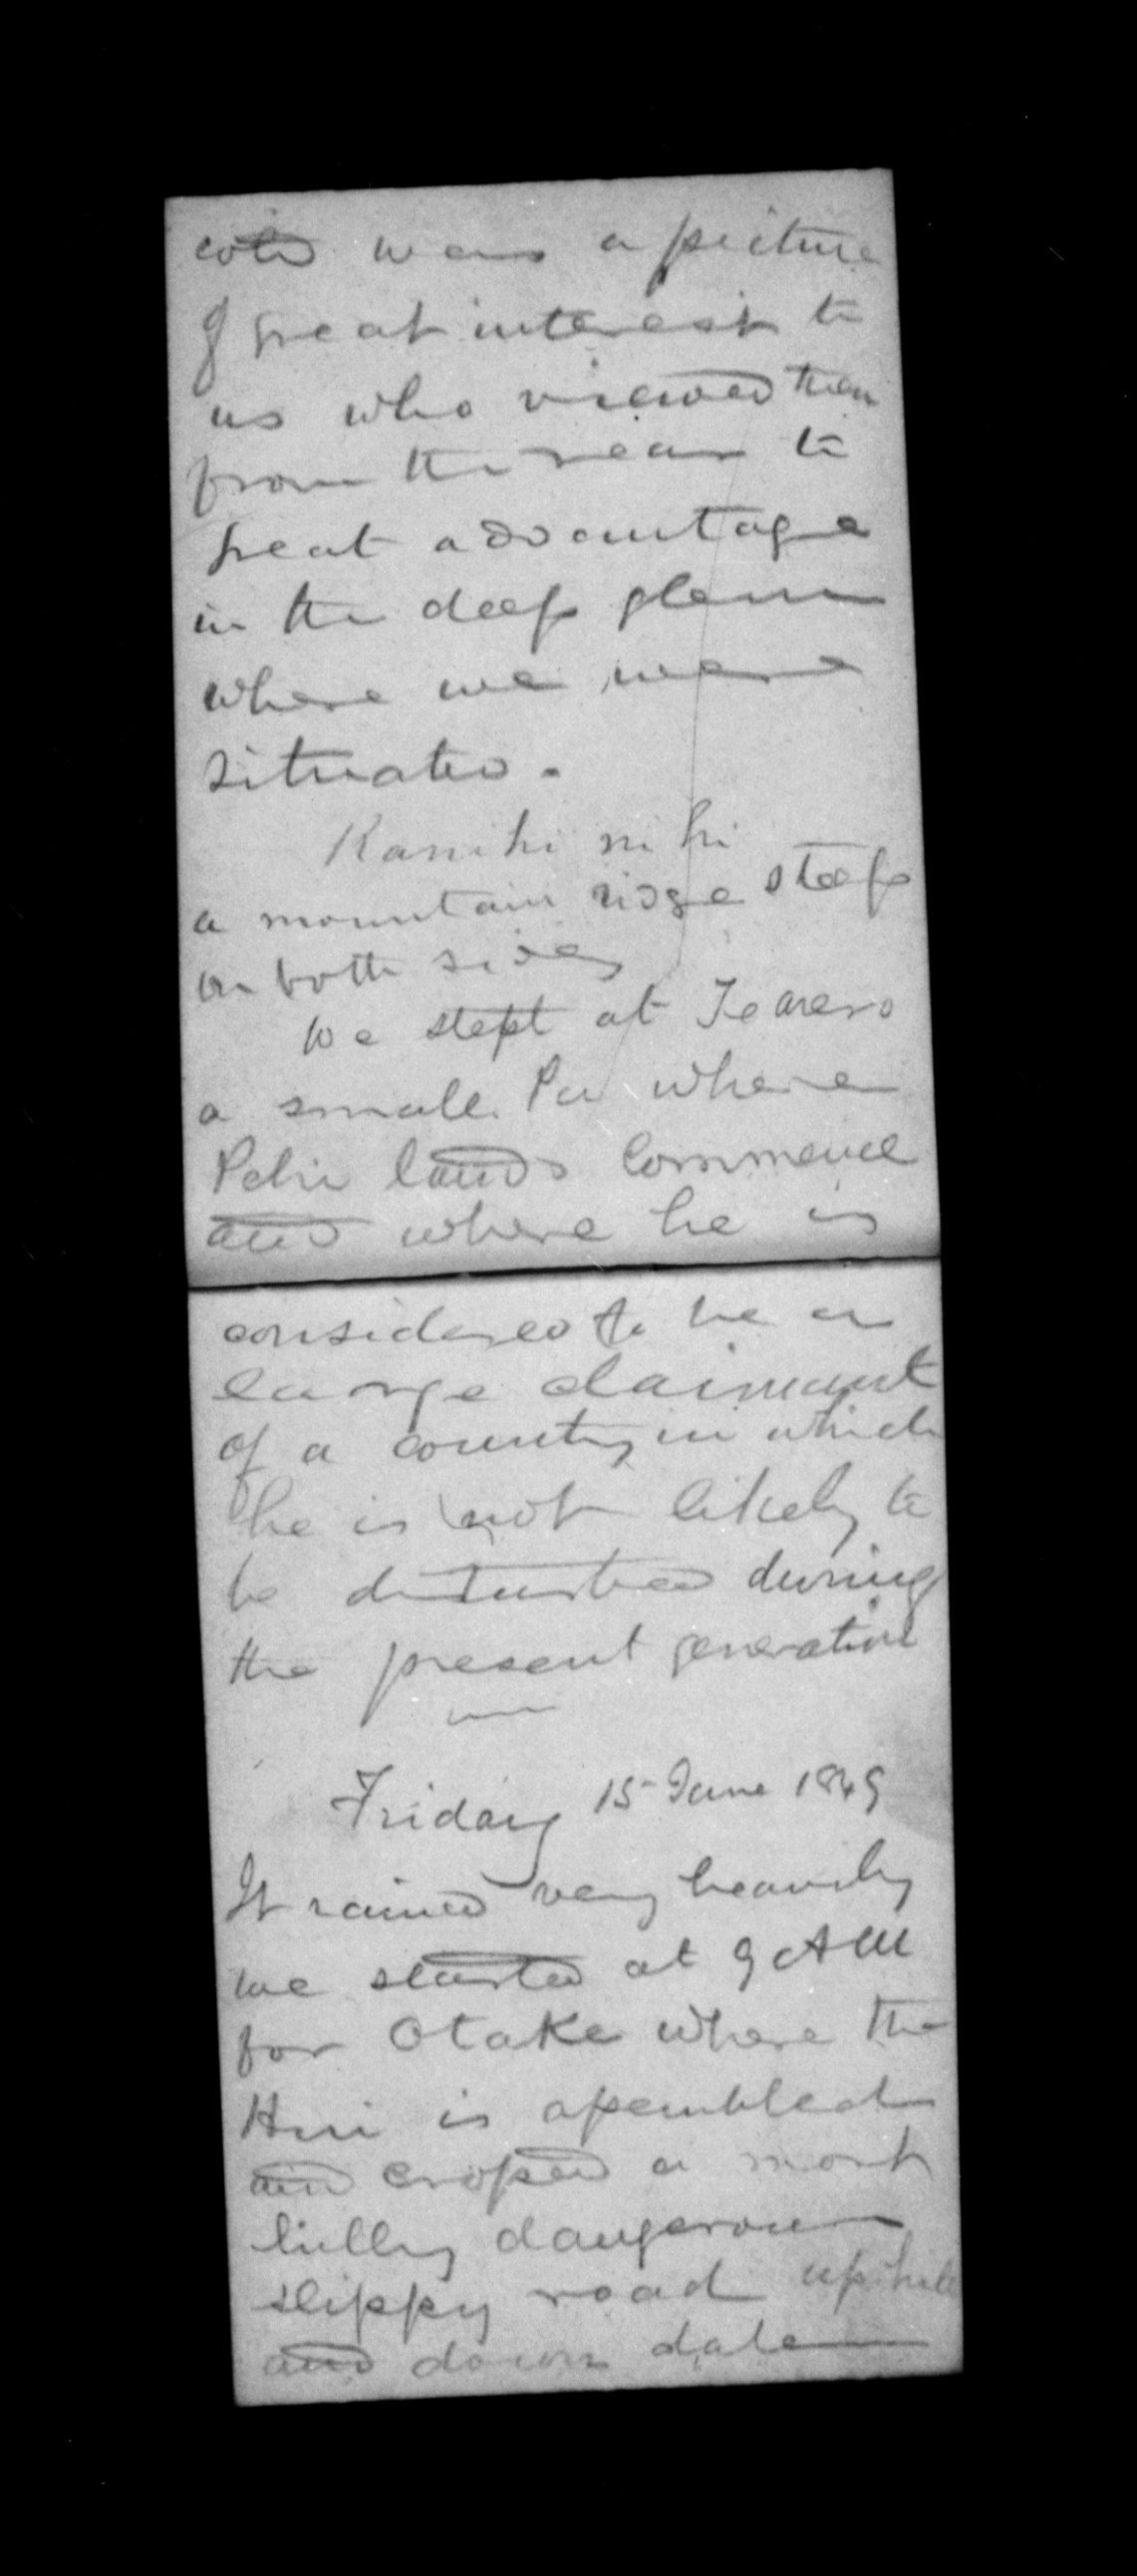 was a picture
of great interest to
us who viewed them
from the rear to
great advantage
in the deep glens
where we were
situated.
Kanihi nihi
a mountain ridge steep
on both sides
We slept at Te arero
a small Pa where
Pehi lands Commence
and where he is
considered to be a
large claimant
of a country in which
he is not likely to
be disturbed during
the present generation
Friday 15 June 1849
It rained very heavily
we started at 9 AM
for Otake where the
Hui is assembled
and crossed a most
hilly dangerous
slippy road up hill
and down dale